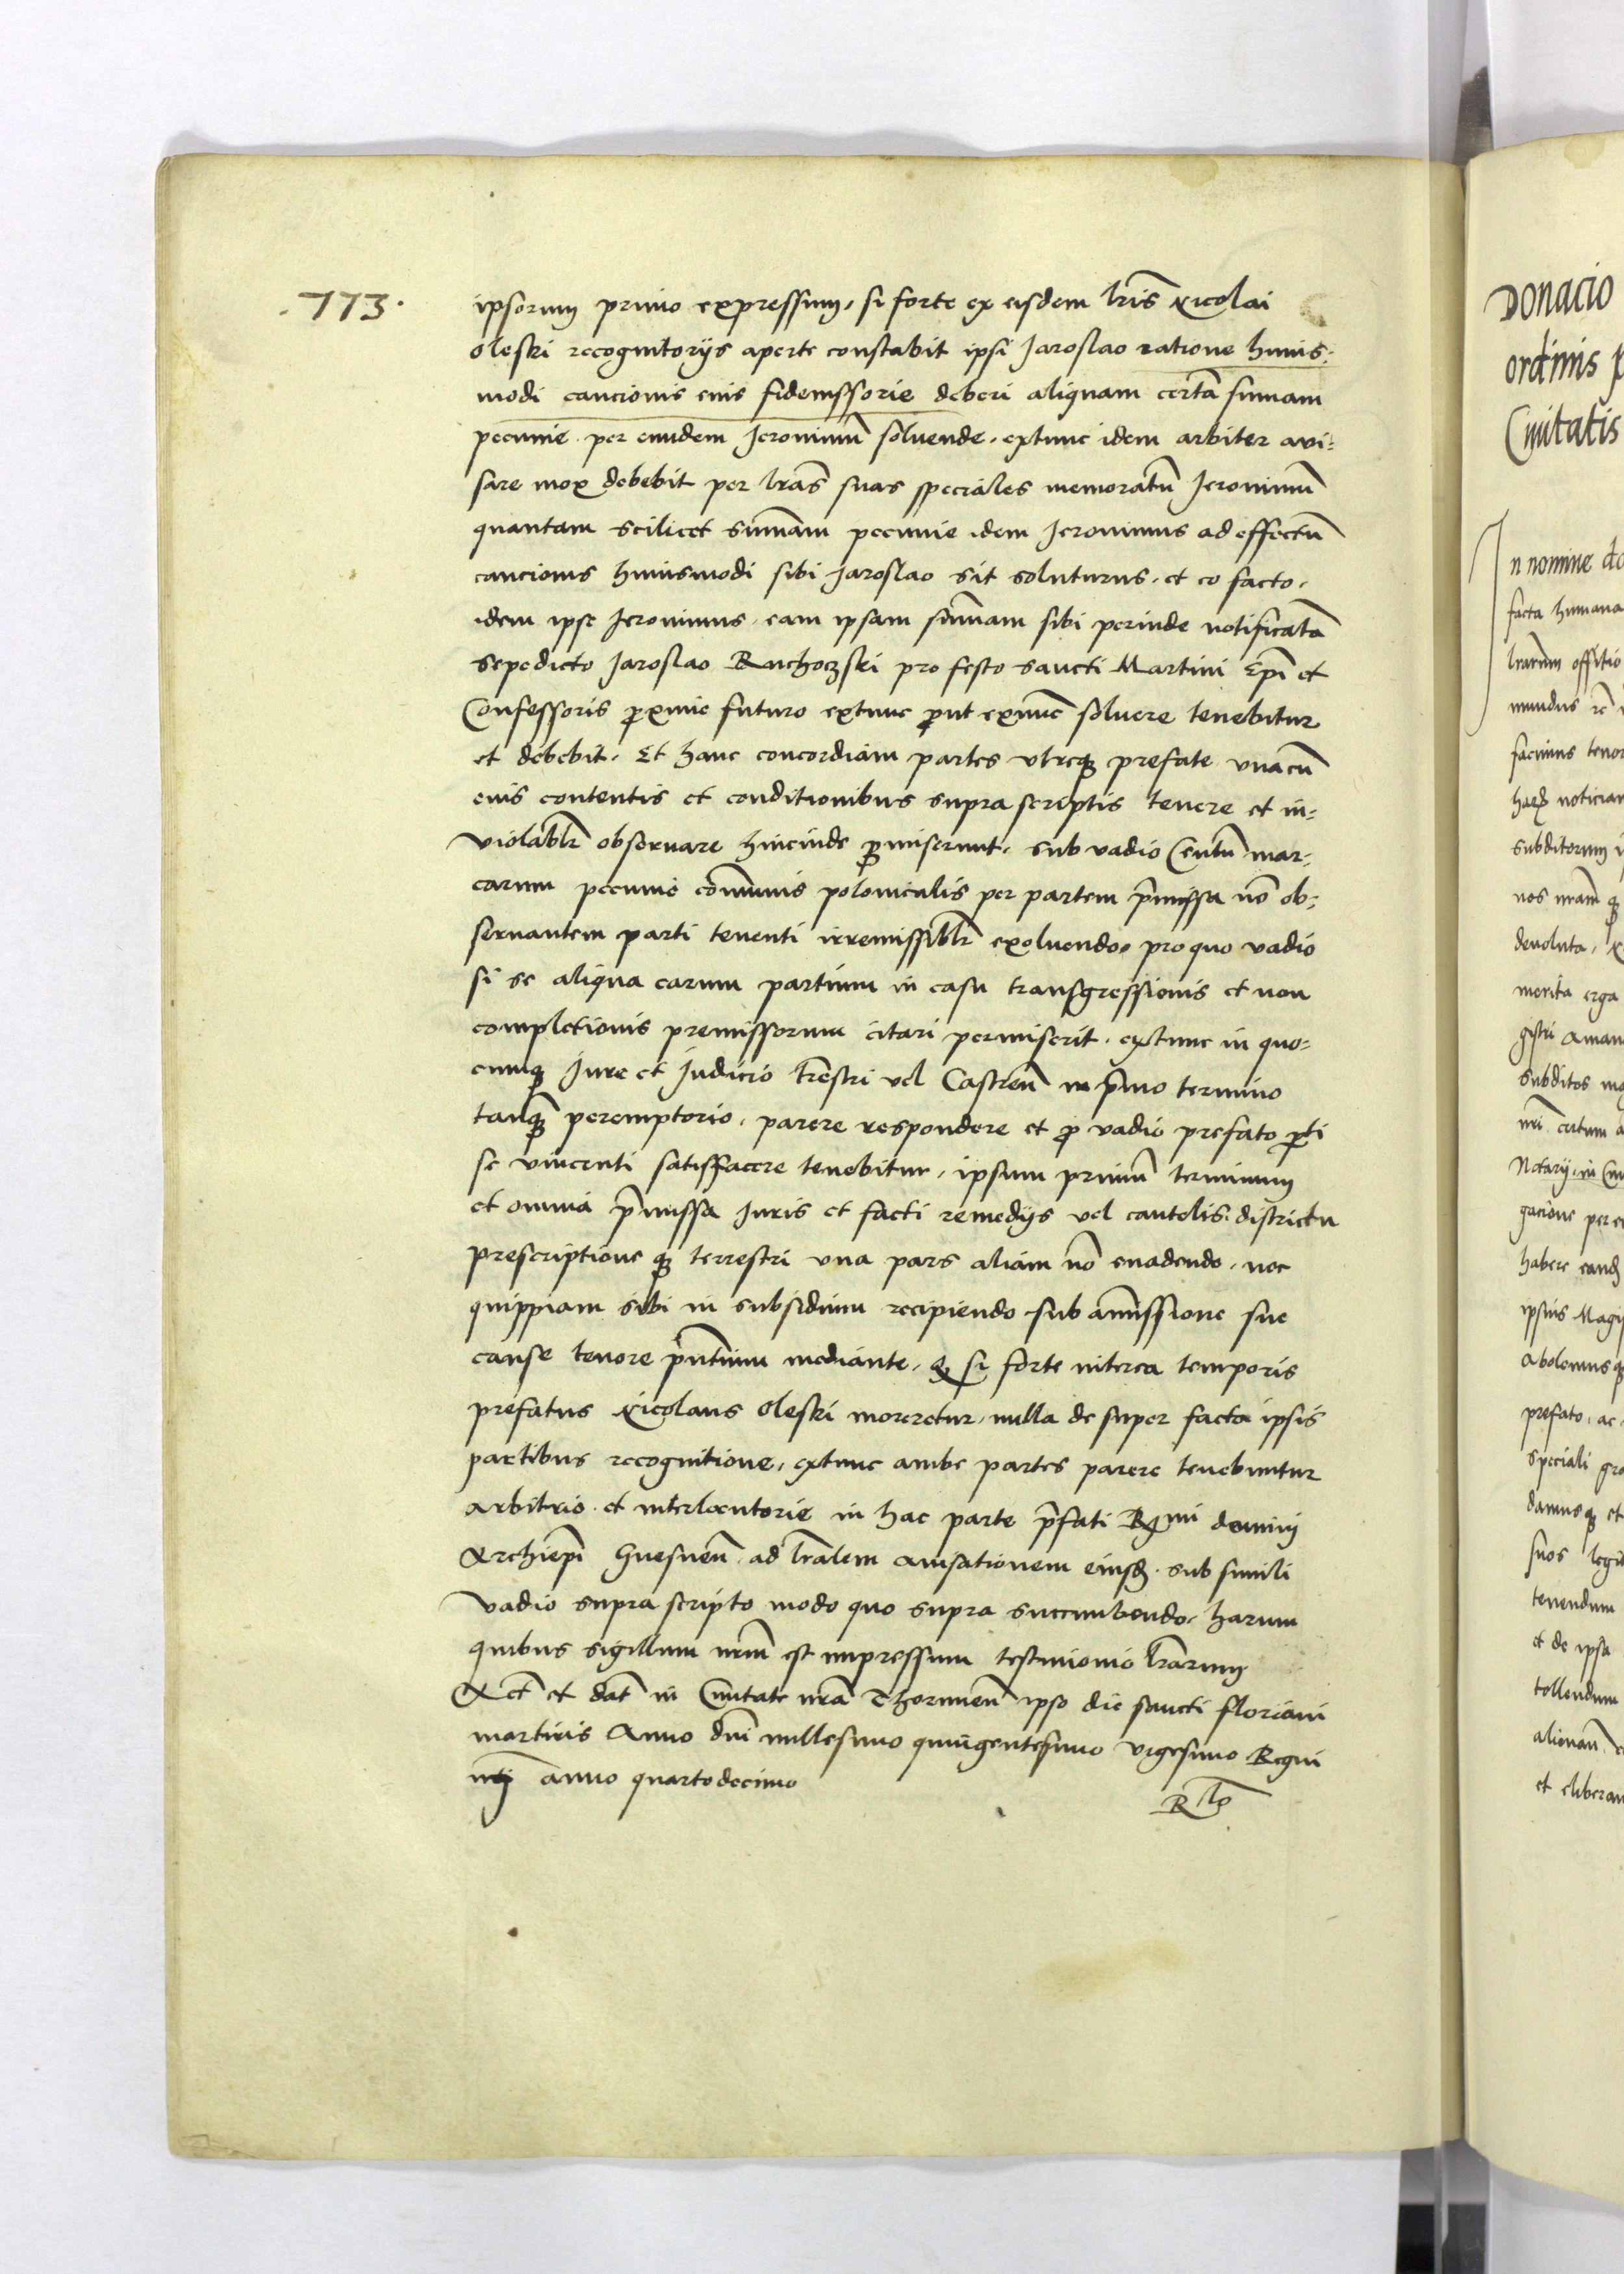 .773.
ipsorum primo expressum, si forte ex eisdem lr̃is Nicolai
oleski recognitorijs aperte constabit ipsi Jaroslao ratione huius:
modi caucionis eius fideiussorie deberi aliquam certã sumam
pecunie per eundem Jeronimũ soluende, extunc idem arbiter avi:
sare mox debebit per lrãs suas speciales memoratũ Jeronimũ
quantam scilicet sum̃am pecunie idem Jeronimus ad effectũ
caucionis huiusmodi sibi Jaroslao sit soluturus, et eo facto,
idem ipse Jeronimus, eam ipsam sum̃am sibi perinde notificatã
sepedicto Jaroslao Ruchoczski pro festo sancti Martini Ep̃i et
Confessoris ꝓxime futuro extunc ꝓut exnũc soluere tenebitur
et debebit. Et hanc concordiam partes vtreqꝫ prefate vnacũ
eius contentis et conditionibus supra scriptis tenere et in:
violabilr̃ obseruare hincinde ꝓmiserunt, sub vadio Centũ mar:
carum pecunie com̃unis polonicalis per partem p̃missa nõ ob:
seruantem parti tenenti irremissiblr̃ exoluendo, pro quo vadio
si se aliqua earum partium in casu transgressionis et non
completionis premissorum citari permiserit, extunc in quo:
cunqꝫ Jure et Judicio tr̃estri vel Castreñ in p̃mo termino
tanqꝫ peremptorio, parere respondere et ꝓ vadio prefato ꝑti
se vincenti satisfacere tenebitur, ipsum primũ terminum
et omnia p̃missa Juris et facti remedijs vel cautelis districtu
prescriptione qꝫ terrestri vna pars aliam nõ euadendo, nec
quippiam sibi in subsidium recipiendo sub am̃issione sue
cause tenore p̃ntium mediante, qꝫ si forte interea temporis
prefatus Nicolaus oleski moreretur, nulla de super facta ipsis
partibus recognitione, extunc ambe partes parere tenebuntur
arbitrio et interlocutorie in hac parte p̃fati Rmi domini
Archiep̃i Gnesneñ, ad lr̃alem auisationem eiusdꝫ sub simili
vadio supra scripto modo quo supra succumbendo, harum
quibus sigillum nr̃m est impressum testimonio lr̃arum
Act̃ et dat̃ in Ciuitate nr̃a Thoruneñ ipso die sancti floriani
martiris Anno dñi millesimo quingentesimo vigesimo Regni
nr̃i anno quartodecimo
Donacio
ordinis
Ciuitatis
n nomine
facta humana
lrarum offitio
mundus
facimus
noticiam
subditorum
nos
deuoluta,
merita erga
subditos
Notarij in
gacione per
habere
ipsius
abolemus
prefato, ac
speciali
damusqꝫ et
suos
tenendum
et de ipsa
tollendum
et